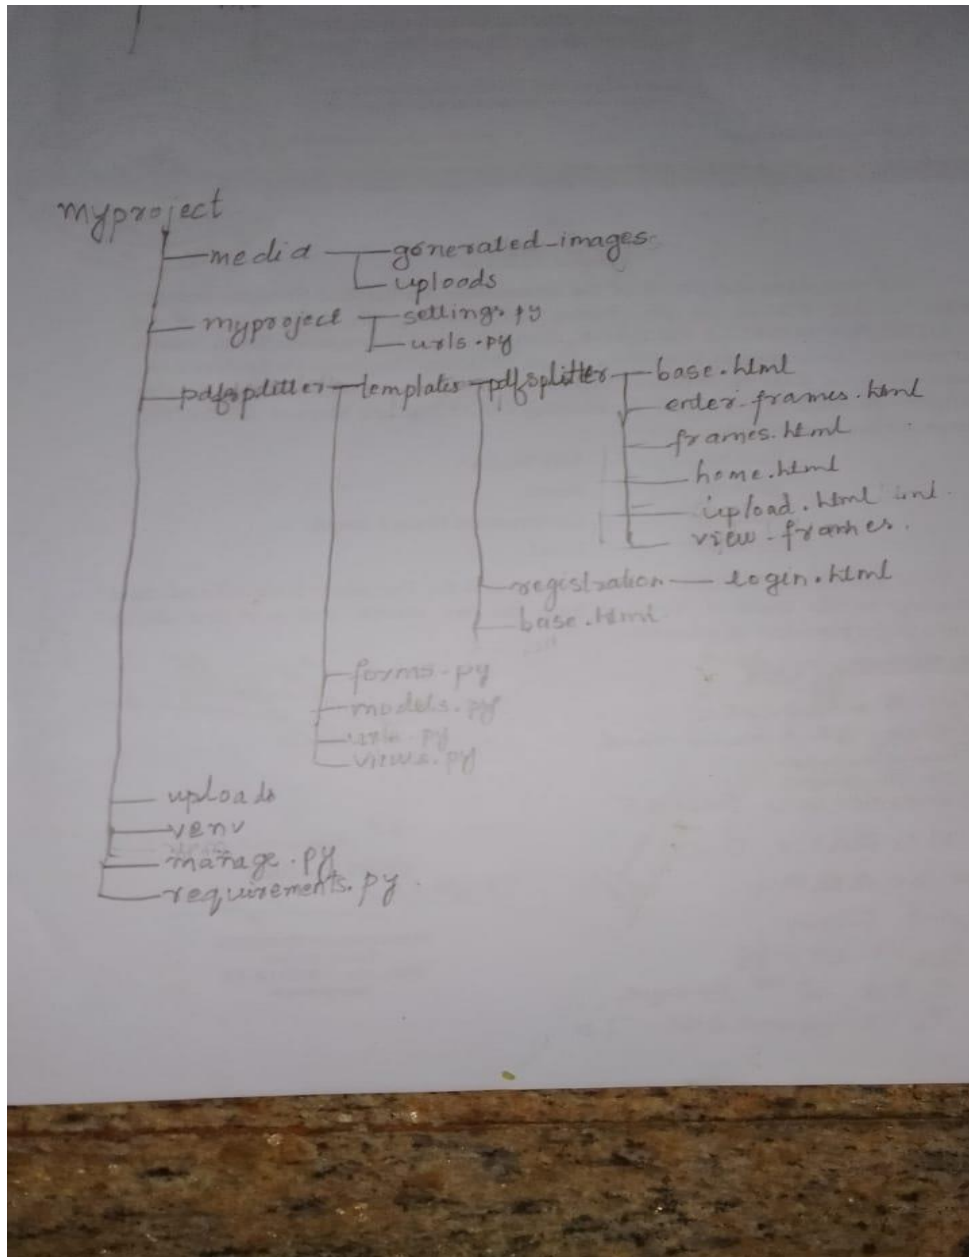 myproject
media generated_images
uploads
myproject settings.py
urls.py
pdfsplitter templates pdfsplitter base.html
enter_frames.html
frames.html
home.html
upload.html
view_frames.
registration login.html
base.html
forms.py
models.py
urls.py
views.py
uploads
venv
manage.py
requirements.py